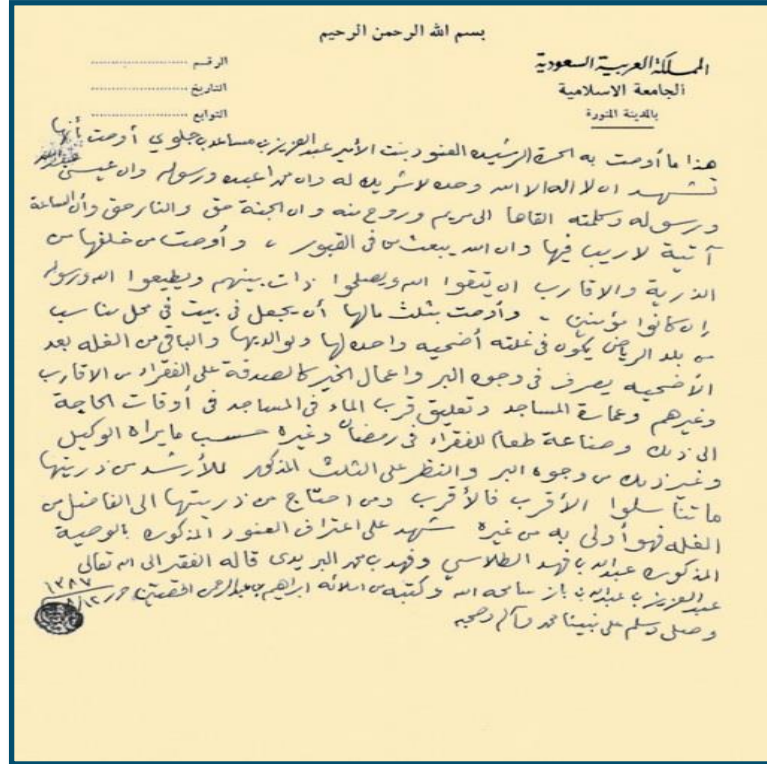 بسم الله الرحمن الرحيم
المملكة العربية السعودية
الجامعة الاسلامية
بالمدينة المنورة
الرقم
التاريخ
التوابع
هذا ما أوصت به الحرة الرشيده العنود بنت الأمير عبدالعزيز بن مساعد بن جلوي أوصت بأنها
تشهد ان لا اله الا الله وحده لا شريك له وان محمدا عبده ورسوله وان عيسى عبد الله
ورسوله وكلمته القاها الى مريم وروح منه وان الجنة حق والنار حق وأن الساعة
آتية لا ريب فيها وان الله يبعث من في القبور ، وأوصت من خلفها من
الذرية والاقارب ان يتقوا الله ويصلحوا ذات بينهم ويطيعوا الله ورسوله
ان كانوا مؤمنين ، وأوصت بثلث مالها أن يجعل في بيت في محل مناسب
من بلد الرياض يكون في غلته أضحيه واحده لها ولوالديها والباقي من الغله بعد
الأضحيه يصرف في وجوه البر واعمال الخير كالصدقة على الفقراء من الاقارب
وغيرهم وعمارة المساجد وتعليق قرب الماء في المساجد في أوقات الحاجة
الى ذلك وصناعة طعام للفقراء في رمضان وغيره حسب ما يراه الوكيل
وغير ذلك من وجوه البر والنظر على الثلث المذكور للأرشد من ذريتها
ما تناسلوا الأقرب فالأقرب ومن احتاج من ذريتها الى الفاضل من
الغله فهو أولى به من غيره شهد على اعتراف العنود المذكوره بالوصية
المذكوره عبدالله بن فهد الطلاسي وفهد بن محمد البريدي قاله الفقير الى الله تعالى
عبدالعزيز بن عبدالله بن باز سامحه الله وكتبه من املائه ابراهيم بن عبدالرحمن الحصين حرر ١٣٨٧
وصلى وسلم على نبينا محمد وآله وصحبه